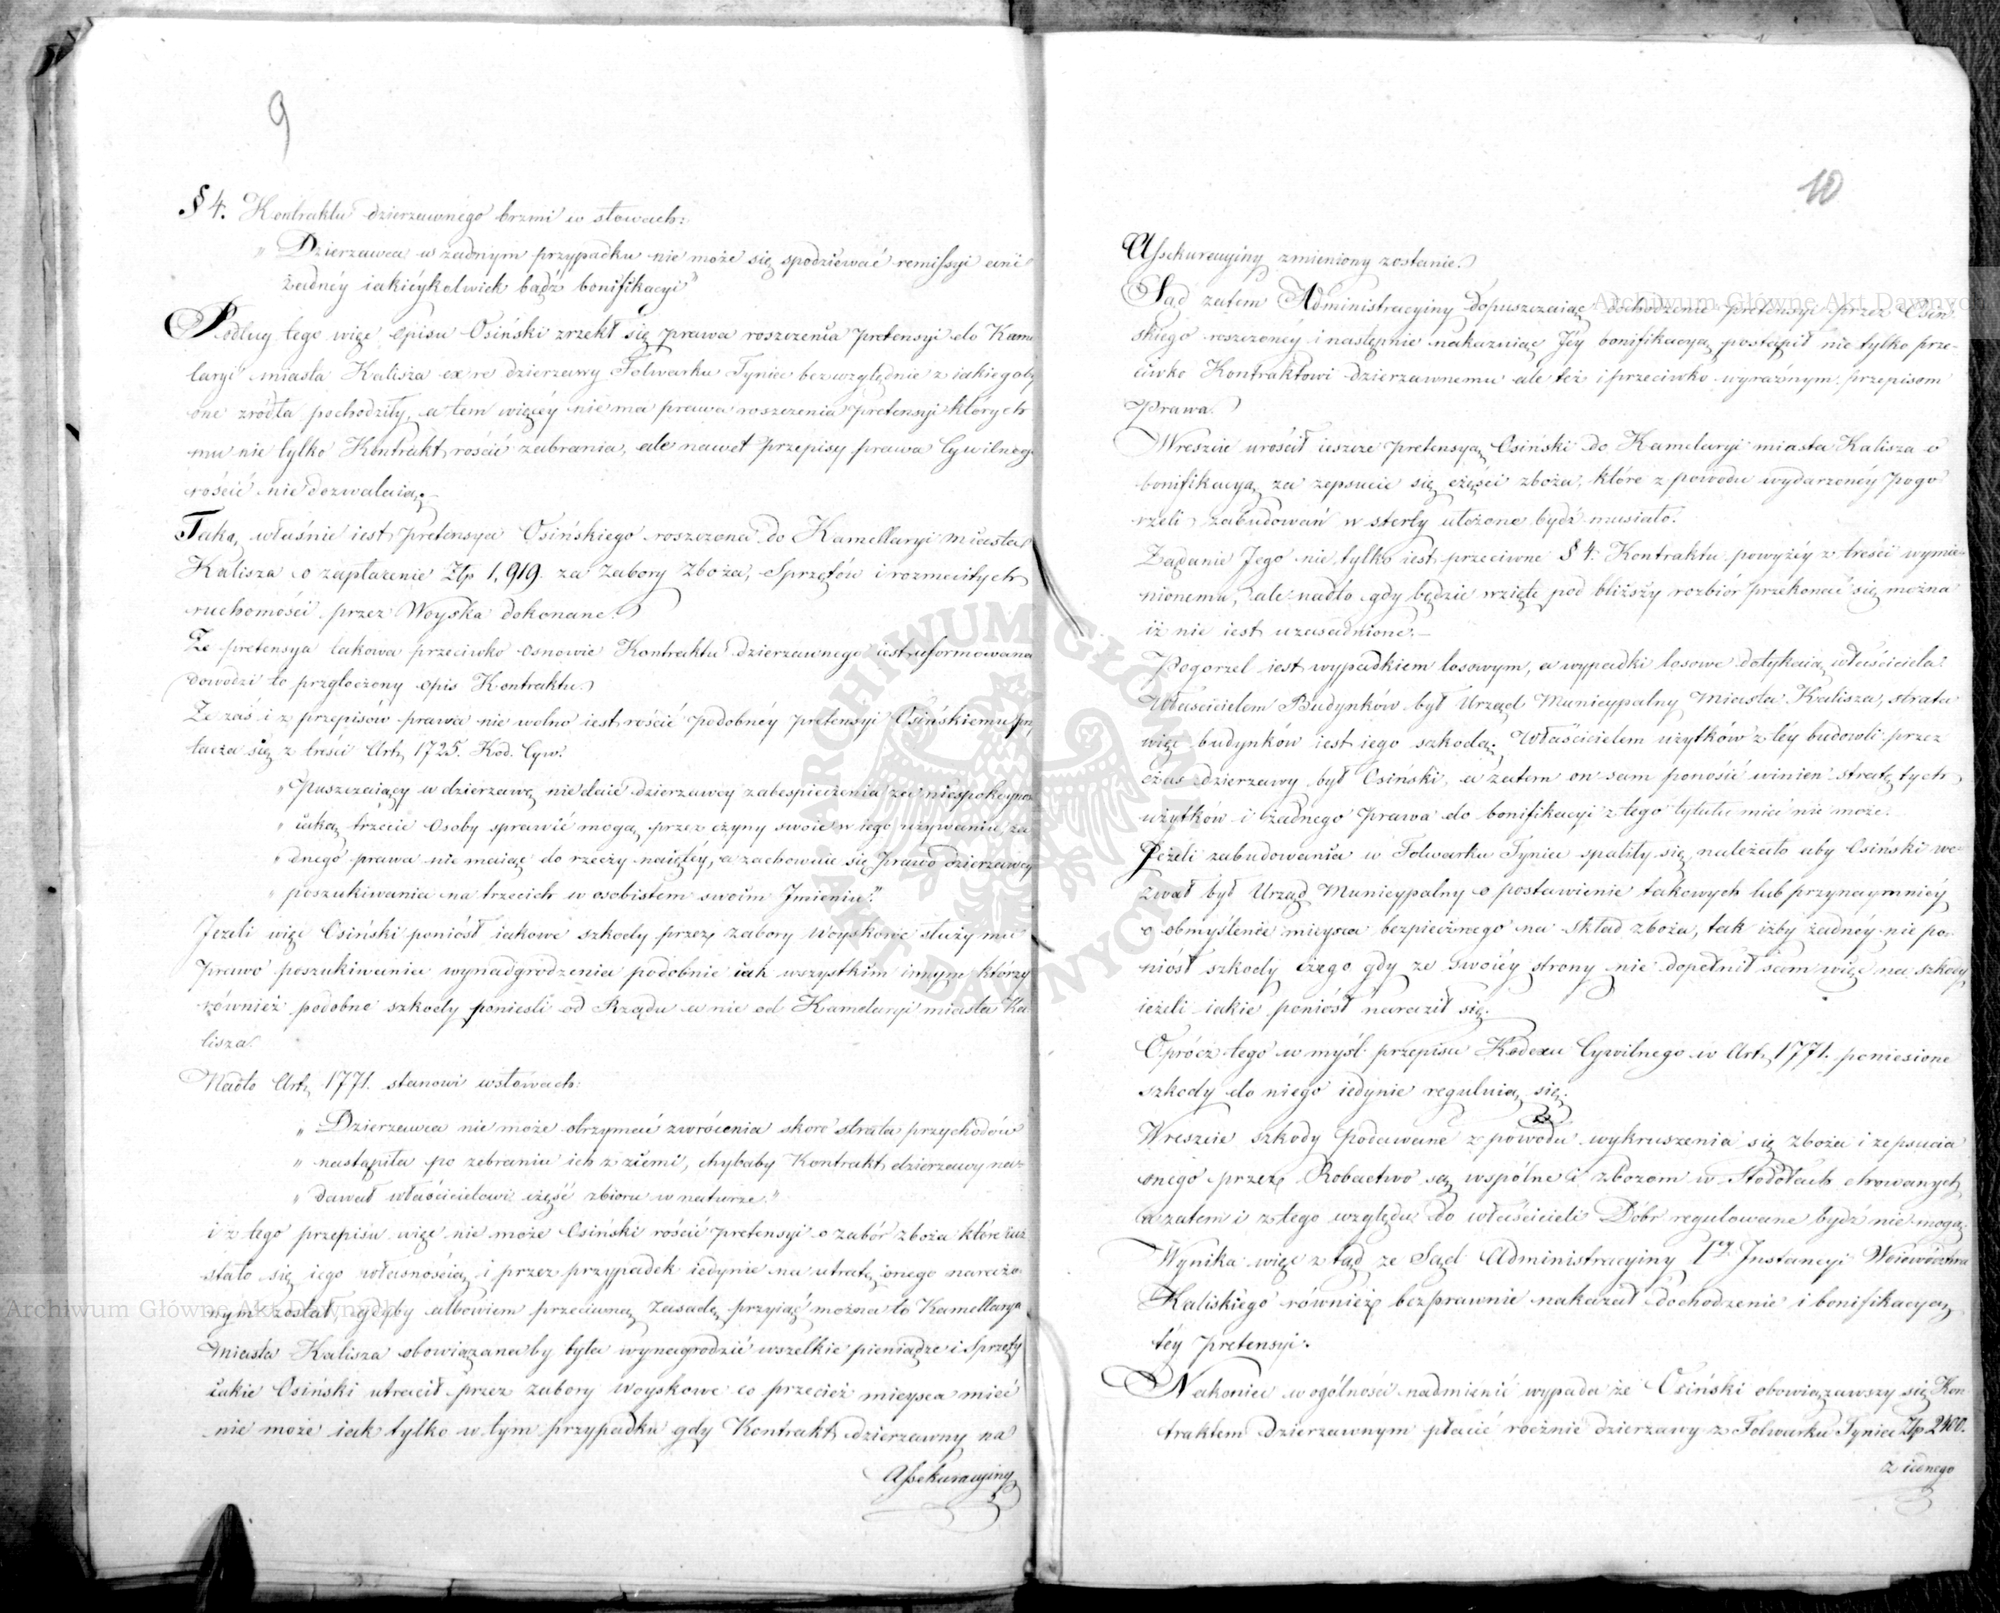 9
§ 4. Kontraktu dzierzawnego brzmi w słowach:
„ Dzierzawca w żadnym przypadku nie może się spodziewać remissyi ani
żadnéy iakiéykolwiek bądź bonifikacyi"
Podług tego więc opisu Osiński zrzekł się prawa roszczenia pretensyi do Kame
laryi miasta Kalisza ex re dzierzawy Folwarku Tyniec bezwzględnie z iakiegoby
one zrodła pochodziły, a tem więcéy nie ma prawa roszczenia pretensyi których
mu nie tylko Kontrakt rościć zabrania, ale nawet przepisy prawa Cywilnego
rościć nie dozwalaią.
Taką właśnie iest pretensya Osińskiego roszczona do Kamellaryi miasta
Kalisza o zapłacenie Złp 1,919. za zabory zboża, Sprzętów i rozmaitych
ruchomości przez Woyska dokonane.
Ze pretensya takowa przeciwko osnowie Kontraktu dzierzawnego iest uformowana
dowodzi to przytoczony opis Kontraktu
Ze zaś i z przepisów prawa nie wolno iest rościć podobnéy pretensyi Osińskiemu prz
tacza się z treści Art. 1725. Kod. Cyw.
„ Puszczaiący w dzierzawę nie daie dzierzawcy zabespieczenia za niespokoyność
„ iaką trzecie Osoby sprawić mogą przez czyny swoie w iego używaniu, ża
„ dnego prawa nie maiąc do rzeczy naiętéy, a zachowuie się prawo dzierzawcy
„ poszukiwania na trzecich w osobistem swoim Imieniu."
Jezeli więc Osiński poniósł iakowe szkody przez zabory Woyskowe służy mu
prawo poszukiwania wynadgrodzenia podobnie iak wszystkim innym którzy
również podobne szkody ponieśli od Rządu a nie od Kamelaryi miasta Ka
lisza.
Nadto Art. 1771. stanowi w słowach:
„ Dzierzawca nie może otrzymać zwrócenia skoro strata przychodów
„ nastąpiła po zebraniu ich z ziemi, chybaby Kontrakt dzierzawy na=
„ dawał właścicielowi część zbioru w naturze."
i z tego przepisu więc nie może Osiński rościć pretensyi o zabór zboża które iuż
stało się iego własnością i przez przypadek iedynie na utratę onego narażo
nym został, gdyby albowiem przeciwną zasadę przyiąć można to Kamellarya
miasta Kalisza obowiązanaby była wynagrodzić wszelkie pieniądze i Sprzęty
iakie Osiński utracił przez zabory Woyskowe co przecież mieysca mieć
nie może iak tylko w tym przypadku gdy Kontrakt dzierzawny na
Assekuracyiny
10
Assekuracyiny zmieniony zostanie.
Sąd zatem Administracyiny dopuszczaiąc dochodzenie pretensyi przez Osiń=
skiego roszczonéy i następnie nakazuiąc Jéy bonifikacyą postąpił nie tylko prze-
ciwko Kontraktowi dzierzawnemu ale też i przeciwko wyraźnym przepisom
Prawa.
Wreszcie urościł ieszcze pretensyą Osiński do Kamelaryi miasta Kalisza o
bonifikacyą za zepsucie się części zboża, które z powodu wydarzonéy pogo
rzeli zabudowań w sterty ułożone bydź musiało.
Żądanie Jego nie tylko iest przeciwne § 4. Kontraktu powyżéy z treści wymie=
nionemu, ale nadto gdy będzie wzięte pod bliższy rozbiór przekonać się można
iż nie iest uzasadnione.—
Pogorzel iest wypadkiem losowym, a wypadki losowe dotykaią właściciela.
Właścicielem Budynków był Urząd Municypalny Miasta Kalisza, strata
więc budynków iest iego szkodą; Właścicielem użytków z téy budowli przez
czas dzierzawy był Osiński, a zatem on sam ponosić winien stratę tych
użytków i żadnego Prawa do bonifikacyi z tego tytułu mieć nie może.
Jeżeli zabudowania w Folwarku Tyniec spaliły się należało aby Osiński we=
zwał był Urząd Municypalny o postawienie takowych lub przynaymniéy
o obmyślenie mieysca bezpiecznego na skład zboża, tak iżby żadnéy nie po=
niósł szkody czego gdy ze swoiéy strony nie dopełnił sam więc na szkody
ieżeli iakie poniósł naraził się.
Oprócz tego w myśl przepisu Kodexu Cywilnego w Art. 1771. poniesione
szkody do niego iedynie reguluią się.
Wreszcie szkody podawane z powodu wykruszenia się zboża i zepsucia
onego przez Robactwo są wspólne i zbozom w Stodołach chowanych
a zatem i z tego względu do właścicieli Dóbr regulowane bydź nie mogą
Wynika więc z tąd ze Sąd Administracyiny 1ey. Instancyi Woiewództwa
Kaliskiego również bezprawnie nakazał dochodzenie i bonifikacyą
téy pretensyi.
Nakoniec w ogólności nadmienić wypada że Osiński obowiązawszy się Kon
traktem Dzierzawnym płacić rocznie dzierzawy z Folwarku Tyniec Złp 2400.
z iednego
Archiwum Główne Akt Dawnych
Archiwum Główne Akt Dawnych
ARCHIWUM GŁÓWNE AKT DAWNYCH